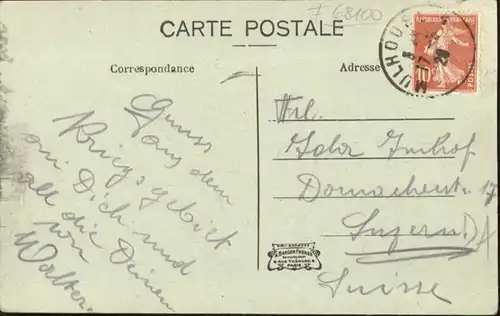 F 68100
CARTE POSTALE
Correspondance
Adresse
MULHOUSE
REPUBLIQUE FRANÇAISE
10
POSTES
Gruss
aus dem
Kriegsgebiet
an Dich und
all die Deinen
von
Walter.
Frl.
Imhof
Dornacherstr. 17
Luzern
Suisse
PARIS